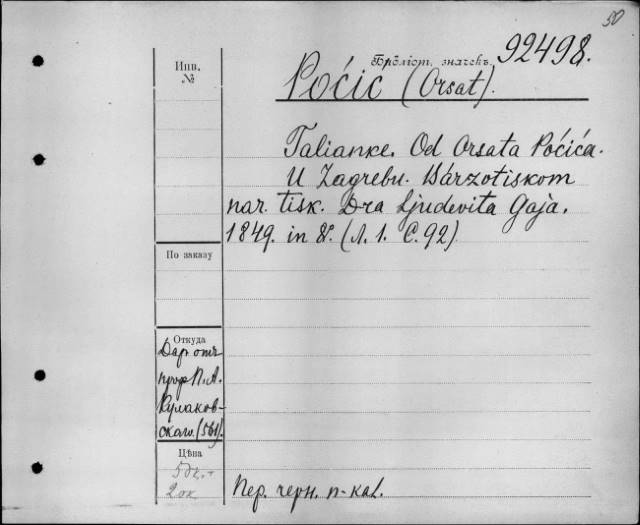 50
Инв.
№
92498.
Počic (Orsat).
Talianke. Od Orsata Počića.
U Zagrebu. Bárzotiskom
nar. tisk. Dra Ljudevita Gaja.
1849. in 8°. (Л. 1. С. 92)
По заказу
Откуда
Даръ отъ
проф. П. А.
Кулаков-
скаго. (561).
Цѣна
50к.
20к
Пер. черн. п-kal.